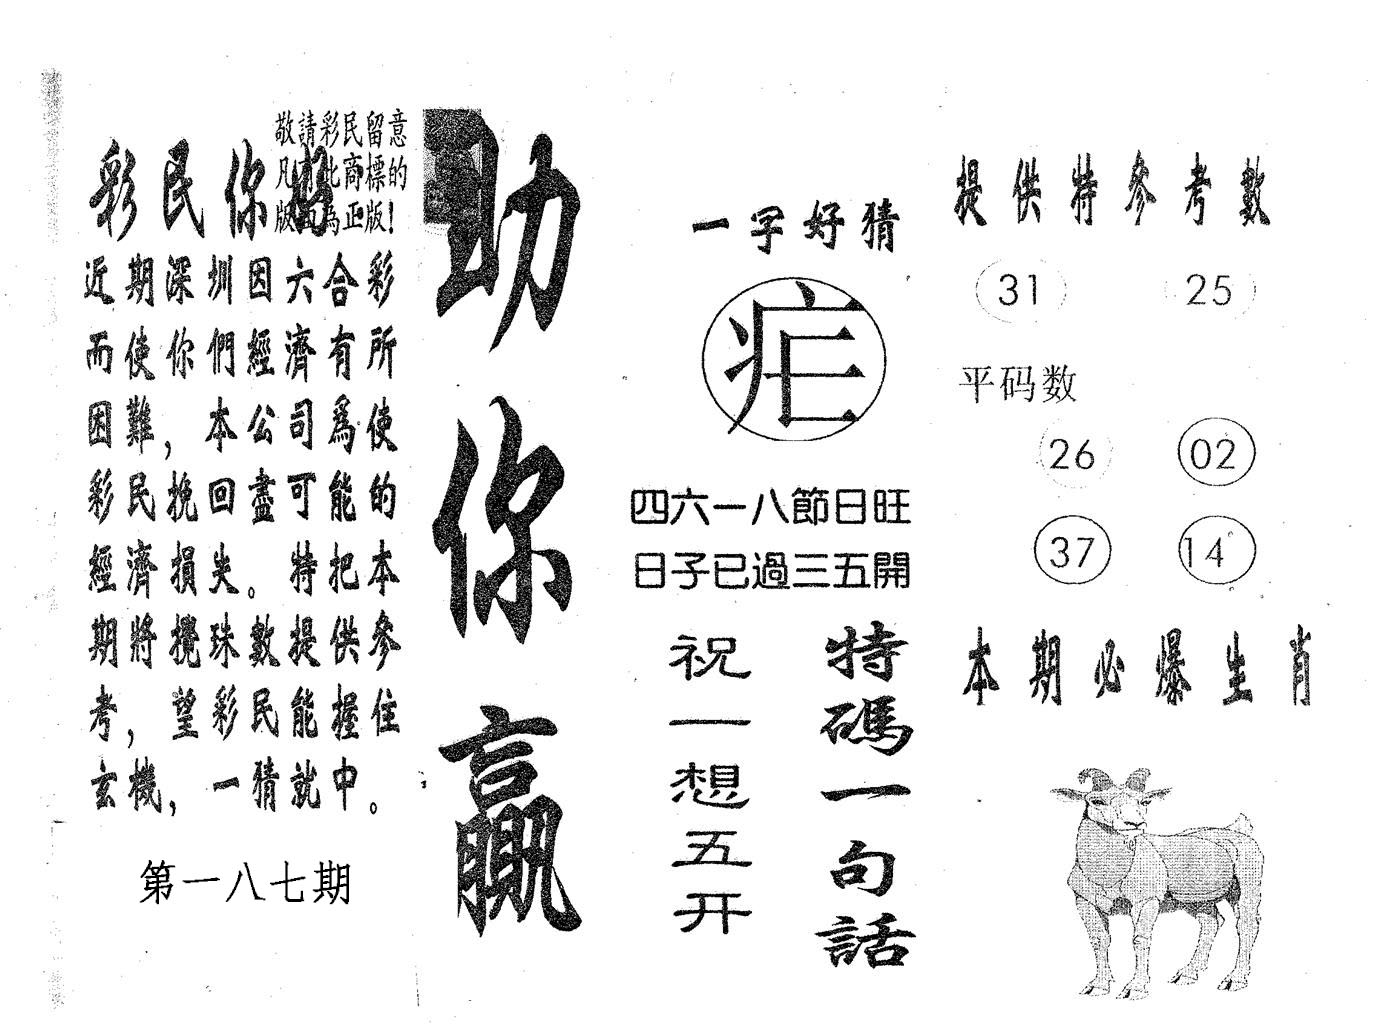 敬請彩民留意
凡有此商標的
版面為正版!
彩民你好
近期深圳因六合彩
而使你們經濟有所
困難，本公司爲使
彩民挽回盡可能的
經濟損失。特把本
期將攪珠數提供參
考，望彩民能握住
玄機，一猜就中。
第一八七期
助你贏
一字好猜
疟
四六一八節日旺
日子已過三五開
特碼一句話
祝一想五开
提供特參考數
31 25
平码数
26 02
37 14
本期必爆生肖